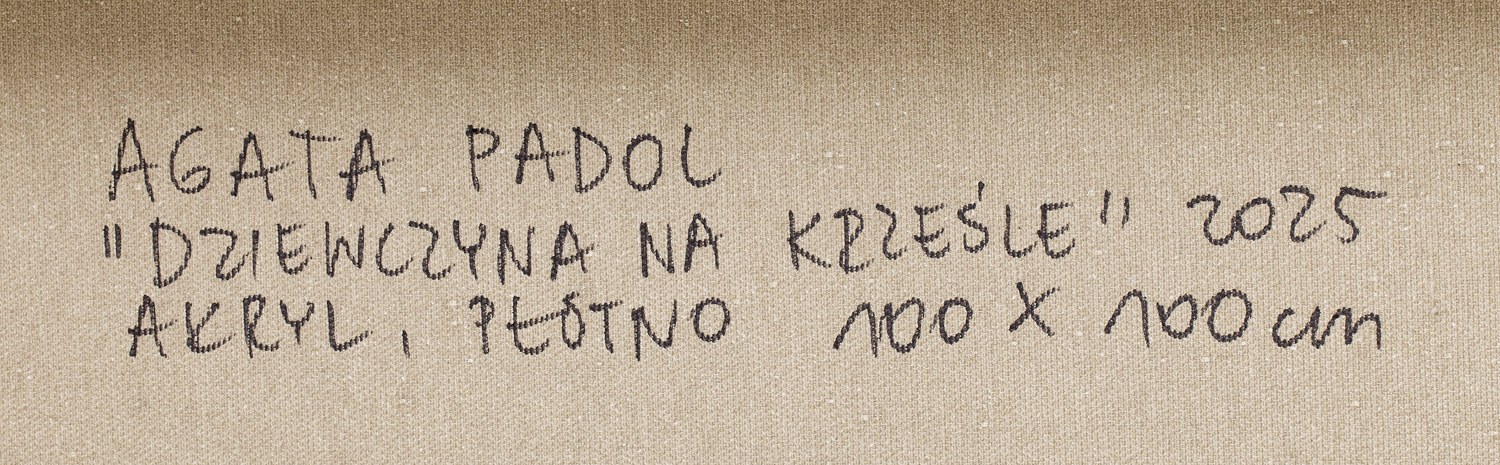 AGATA PADOL
"DZIEWCZYNA NA KRZEŚLE" 2025
AKRYL, PŁÓTNO 100 X 100 cm